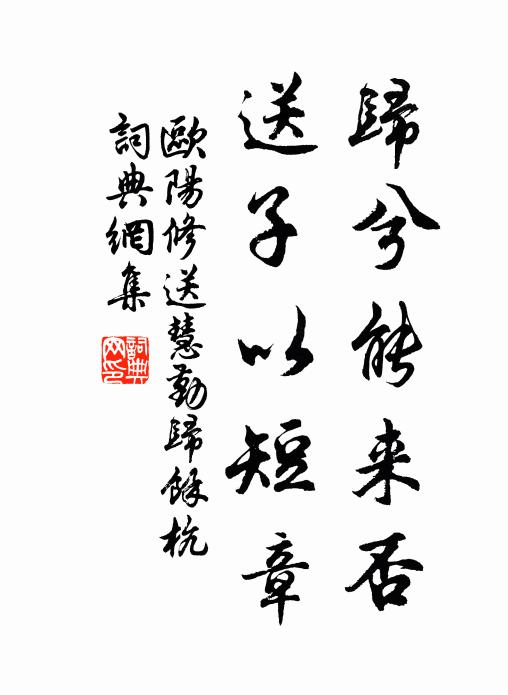 歸兮能来否
送子以短章
歐陽修送慧勤歸餘杭
詞典網集
詞典
网印